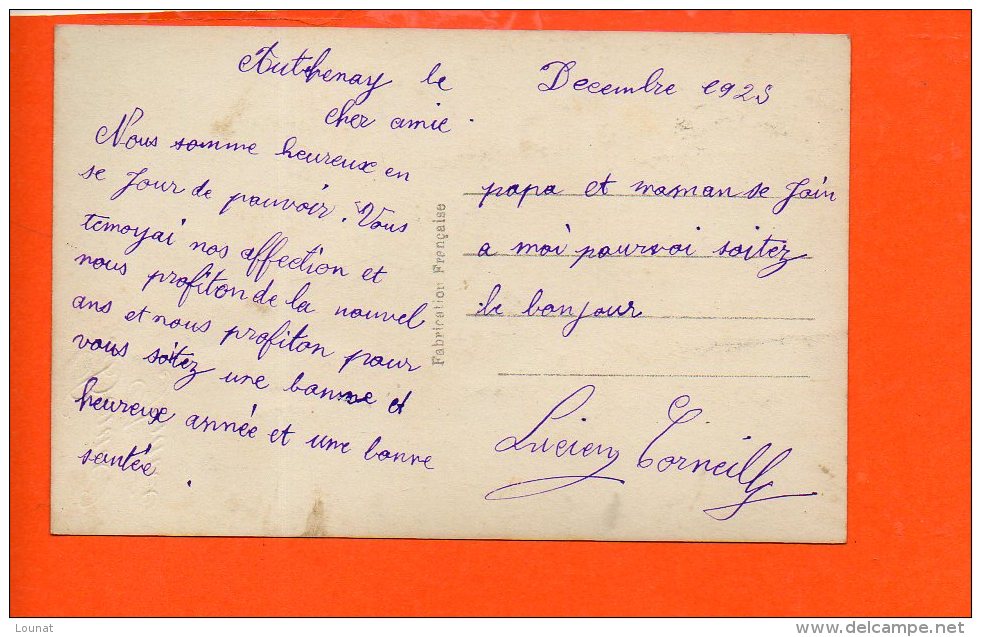 Authenay le Decembre 1925
cher amie.
Nous somme heureux en
se Jour de pouvoir. Vous
temoyai nos affection et
nous profiton de la nouvel
ans et nous profiton pour
vous soitez une bonne et
heureux année et une bonne
santée.
papa et maman se Join
a moi pourvoi soitez
le bonjour
Lucien Corneilly
Fabrication Française
Lounat
www.delcampe.net